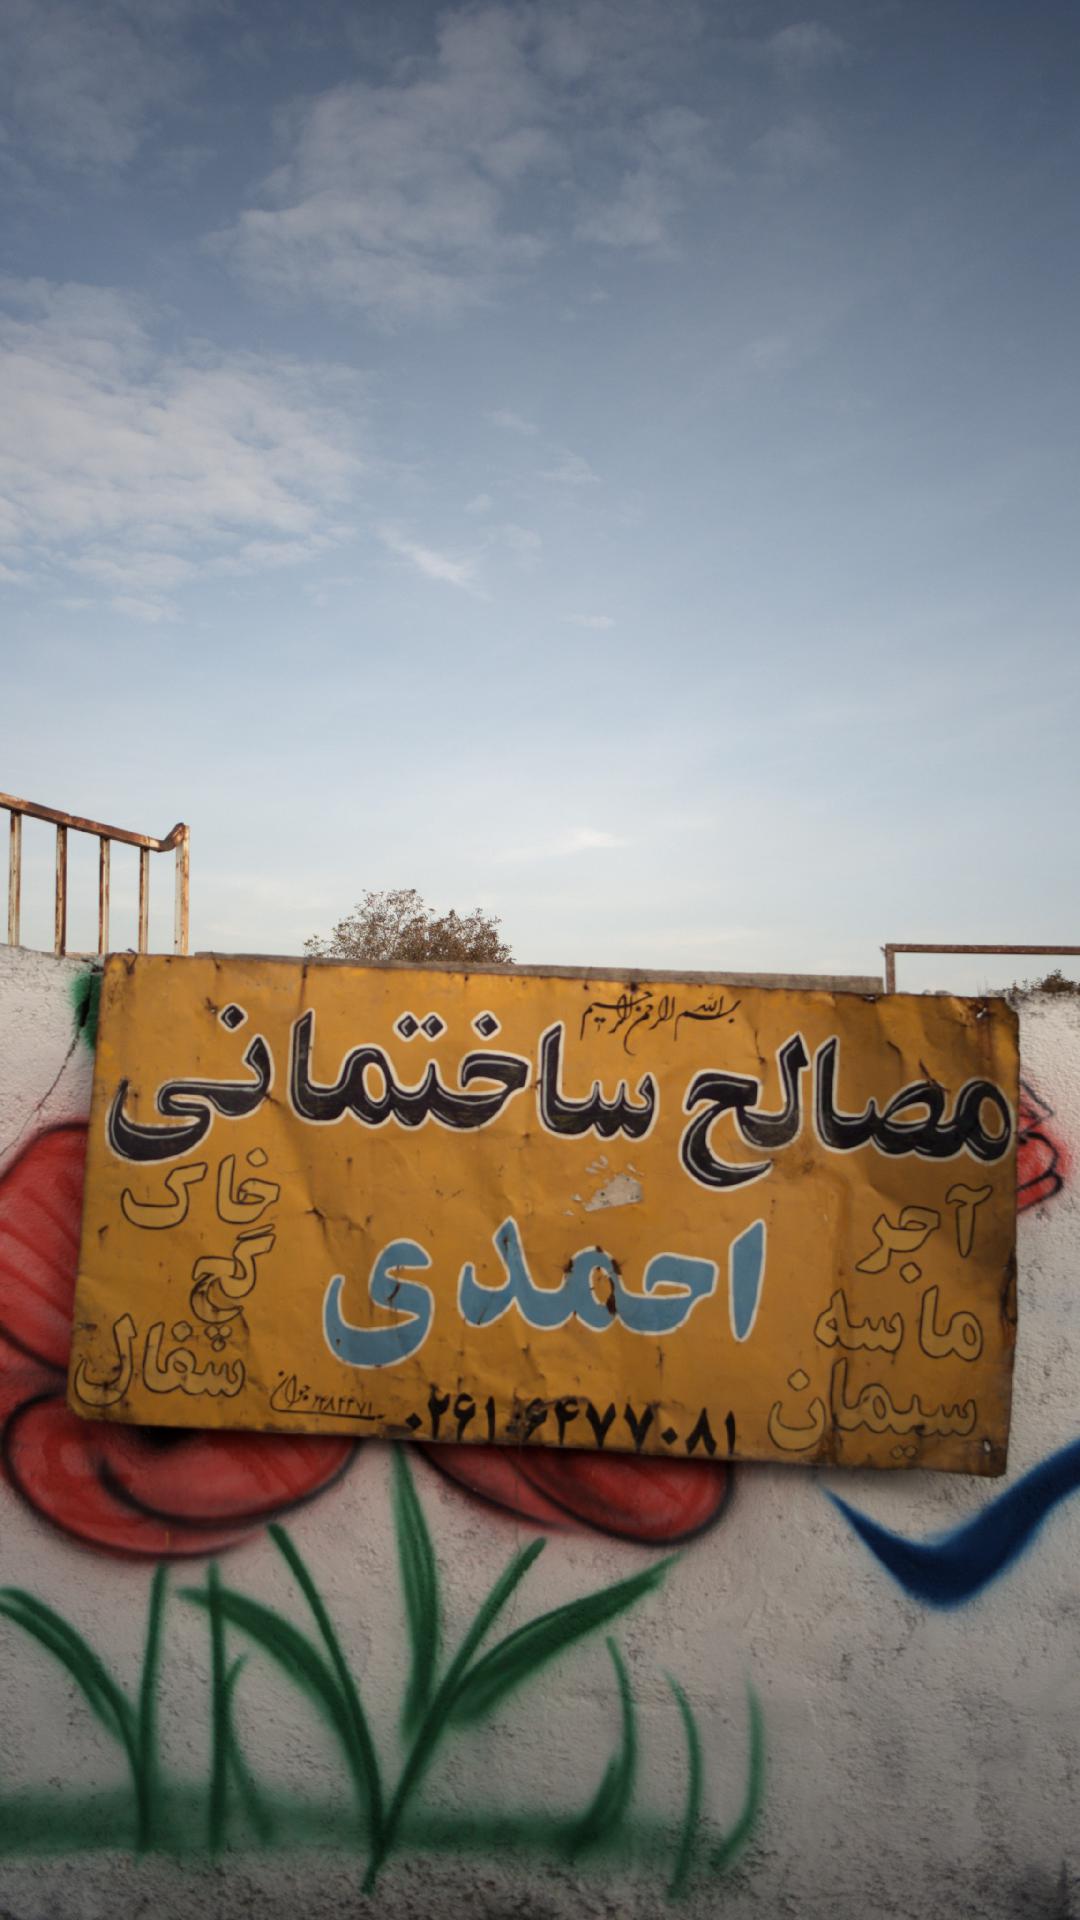 بسم الله الرحمن الرحیم
مصالح ساختمانی
احمدی
آجر
ماسه
سیمان
خاک
گچ
سفال
۰۲۶۱-۶۴۷۷۰۸۱